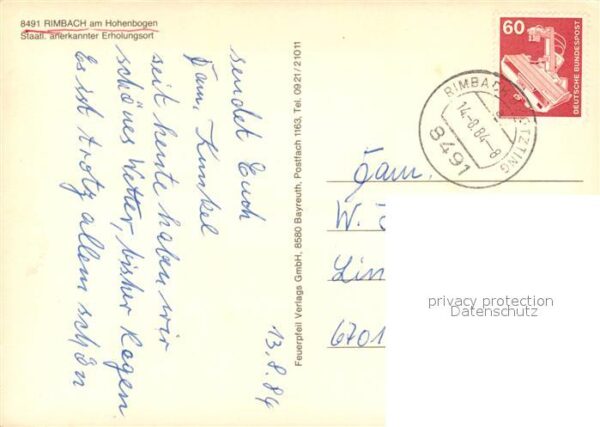 8491 RIMBACH am Hohenbogen
Staatl. anerkannter Erholungsort
sendet Euch
Fam. Kunkel
seit heute haben wir
schönes Wetter, bisher Regen
Es ist trotz allem schön
13.8.84
Feuerpfeil Verlags GmbH, 8580 Bayreuth, Postfach 1163, Tel. 0921/21011
60
DEUTSCHE BUNDESPOST
RIMBACH
14.-8.84-8
8491
Fam.
W.
Lim
6701
privacy protection
Datenschutz